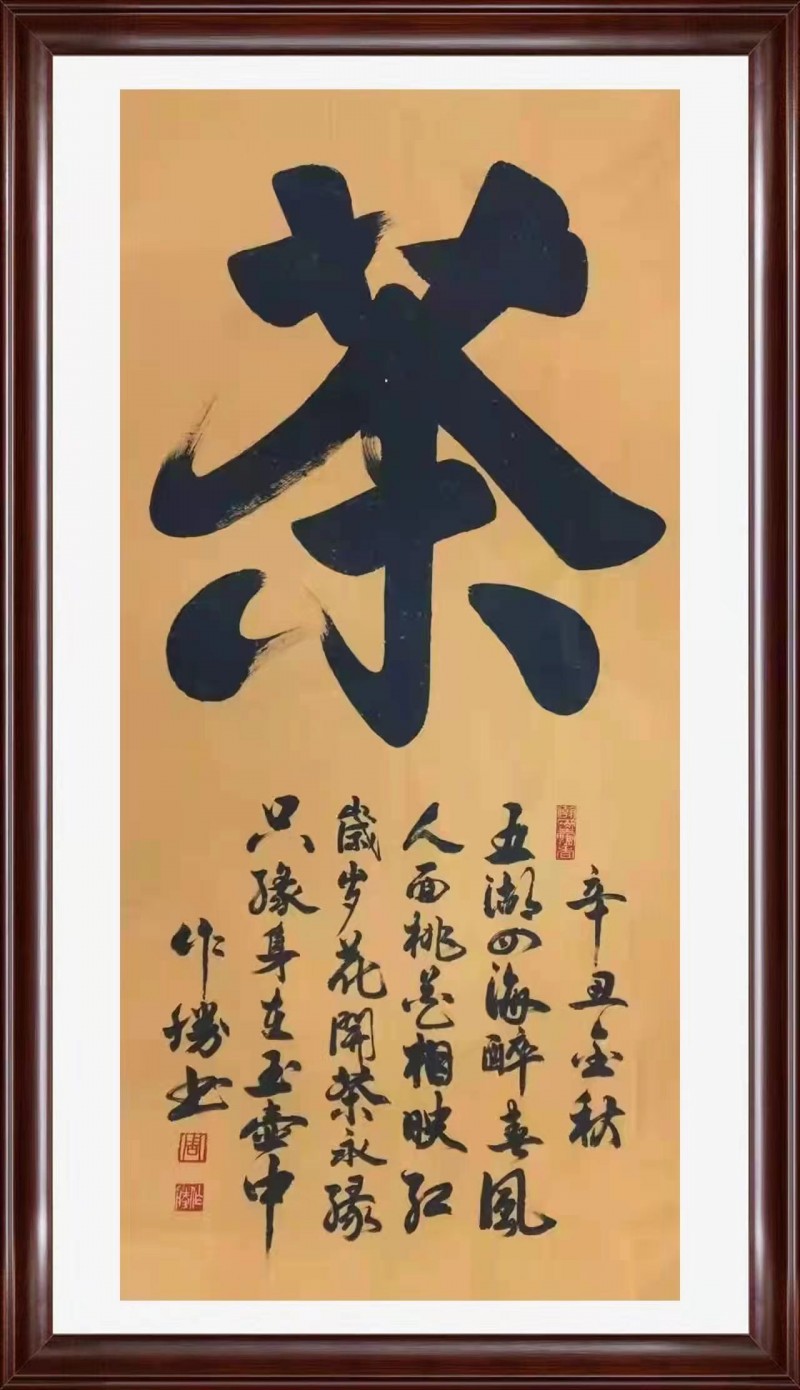 茶
辛丑金秋
五湖四海醉春風
人面桃花相映红
歲岁花開茶永緣
只緣身在玉壺中
作勝书
周